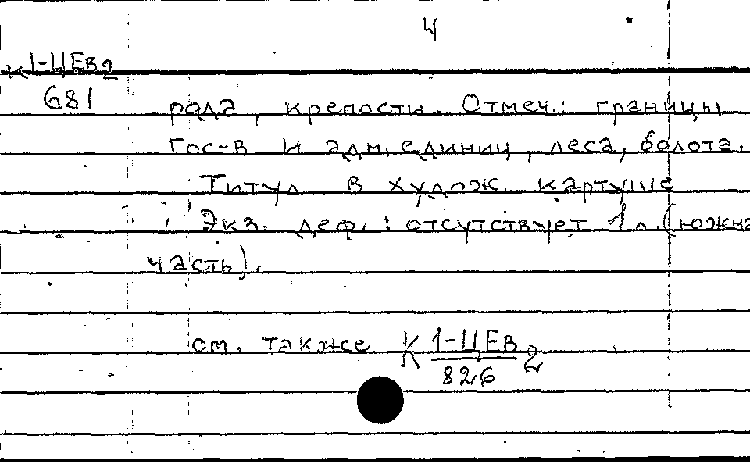 4
К 1-ЦЕв 2
681
рода, крепости. Отмеч.: границы
гос-в и адм. единиц, леса, болота.
Титул в худож. картуше
Экз. деф.: отсутствует 1 л. (южна
часть).
см. также К 1-ЦЕв 2
826